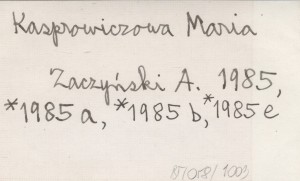 Kasprowiczowa Maria
Zaczyński A. 1985,
*1985 a, *1985 b, *1985 e